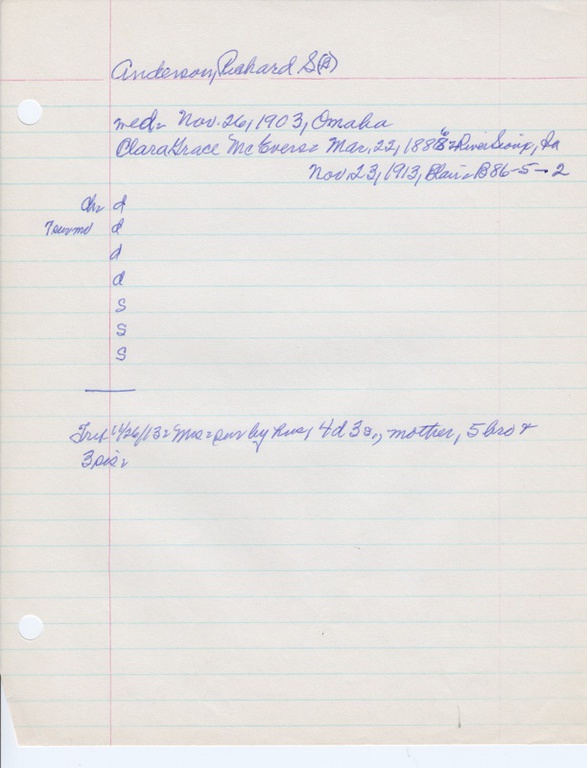 Anderson, Richard S(B)
med- Nov. 26, 1903, Omaha
Clara Grace McEvers- Mar. 22, 1886- River Sioux, Ia
Nov. 23, 1913, Blair- B86-5-2
Ch- d
7 sur d
d
d
s
s
s
11/26/13- Mrs- sur by hus, 4d 3s, mother, 5 bro +
3 sis-